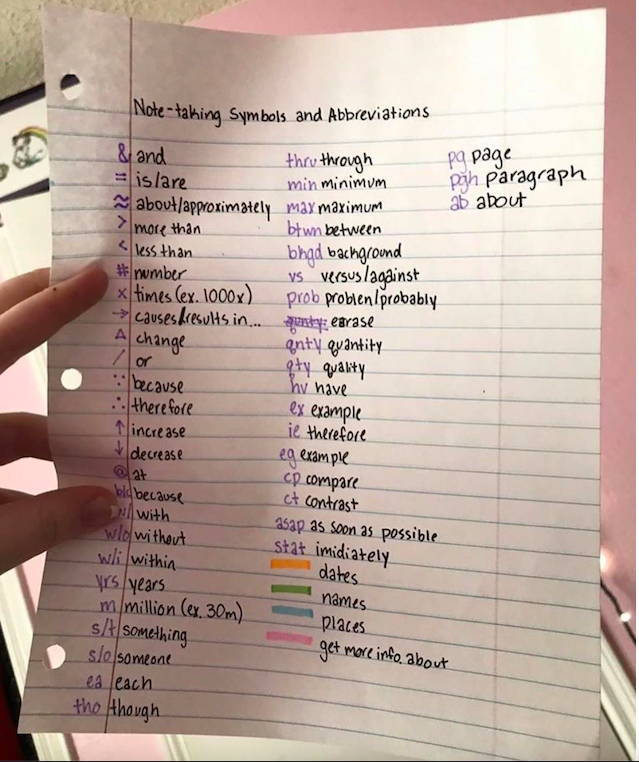 Note-taking Symbols and Abbreviations
& and
= is/are
≈ about/approximately
> more than
< less than
# number
x times (ex. 1000x)
→ causes/results in...
△ change
/ or
∵ because
∴ therefore
↑ increase
↓ decrease
@ at
b/c because
w/ with
w/o without
w/i within
yrs years
m million (ex. 30m)
s/t something
s/o someone
ea each
tho though
thru through
min minimum
max maximum
btwn between
bkgd background
vs versus/against
prob problen/probably
earase
qnty quantity
qty quality
hv have
ex example
ie therefore
eg example
cp compare
ct contrast
asap as soon as possible
stat imidiately
dates
names
places
get more info. about
pg page
pgh paragraph
ab about